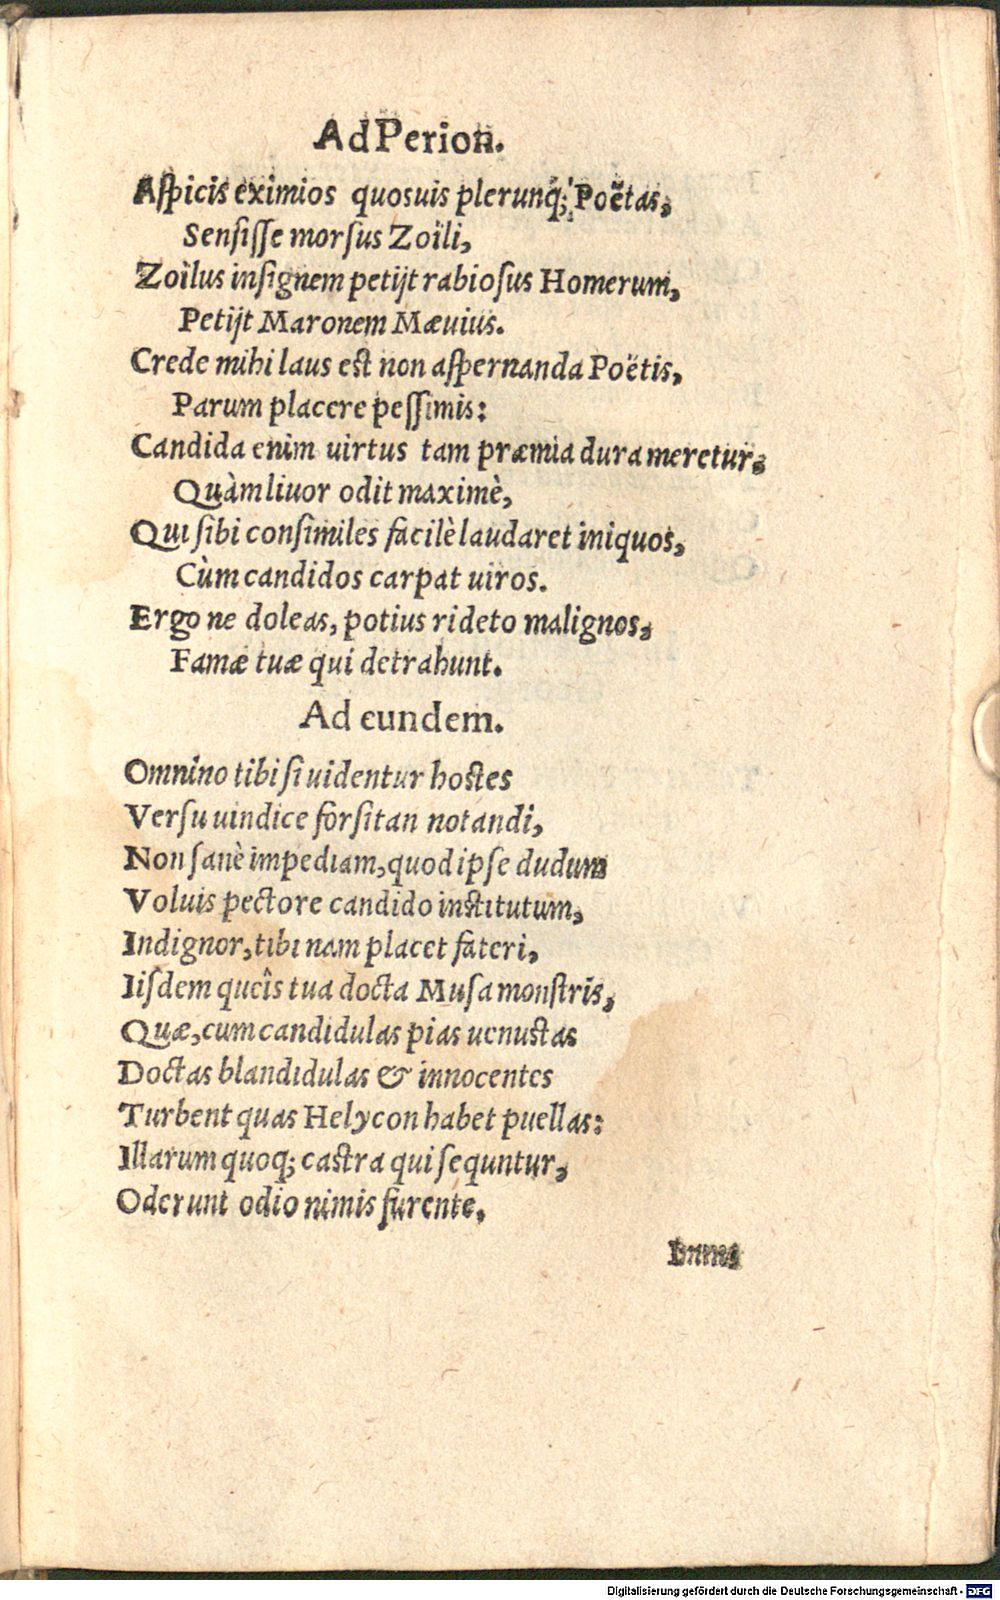 Ad Perion.
Aſpicis eximios quosuis plerunq; Poëtas,
Senſiſſe morſus Zoïli,
Zoïlus inſignem petijt rabioſus Homerum,
Petijt Maronem Mæuius.
Crede mihi laus est non aſpernanda Poëtis,
Parum placere peſſimis:
Candida enim uirtus tam præmia dura meretur,
Quàm liuor odit maximè,
Qui ſibi conſimiles facilè laudaret iniquos,
Cùm candidos carpat uiros.
Ergo ne doleas, potius rideto malignos,
Famæ tuæ qui detrahunt.
Ad eundem.
Omnino tibi ſi uidentur hostes
Verſu uindice forſitan notandi,
Non ſanè impediam, quod ipſe dudum
Voluis pectore candido institutum,
Indignor, tibi nam placet fateri,
Iiſdem queîs tua docta Muſa monſtris,
Quæ, cum candidulas pias uenustas
Doctas blandidulas & innocentes
Turbent quas Helycon habet puellas:
Illarum quoq; castra qui ſequntur,
Oderunt odio nimis furente,